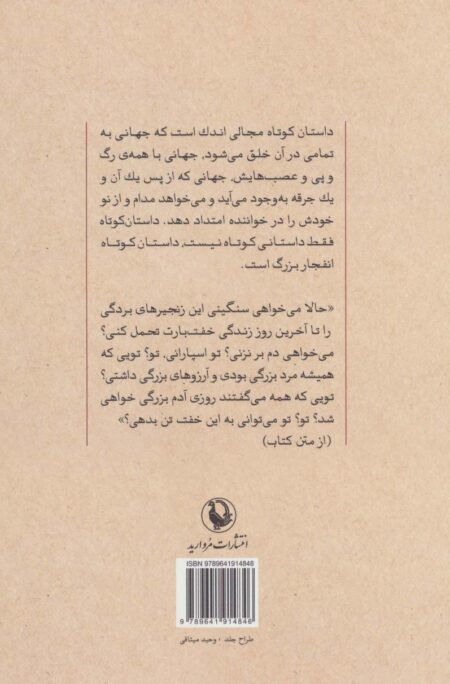 داستان کوتاه مجالی اندک است که جهانی به
تمامی در آن خلق می‌شود، جهانی با همه‌ی رگ
و پی و عصب‌هایش، جهانی که از پس یک آن و
یک جرقه به‌وجود می‌آید و می‌خواهد مدام و از نو
خودش را در خواننده امتداد دهد. داستان‌کوتاه
فقط داستانی کوتاه نیست، داستان کوتاه
انفجار بزرگ است.
«حالا می‌خواهی سنگینی این زنجیرهای بردگی
را تا آخرین روز زندگی خفت‌بارت تحمل کنی؟
می‌خواهی دم بر نزنی؟ تو اسپارانی، تو؟ تویی که
همیشه مرد بزرگی بودی و آرزوهای بزرگی داشتی؟
تویی که همه می‌گفتند روزی آدم بزرگی خواهی
شد؟ تو؟ تو می‌توانی به این خفت تن بدهی؟»
(از متن کتاب)
انتشارات مروارید
ISBN 9789641914846
9 789641 914846
طراح جلد • وحید میثاقی